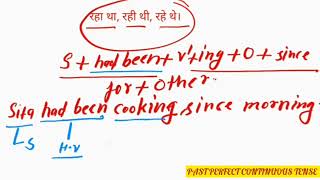 रहा था, रही थी, रहे थे।
S + had been + v'+ing + O + since
for + Other.
Sita had been cooking since morning.
S
H.V
PAST PERFECT CONTINUOUS TENSE